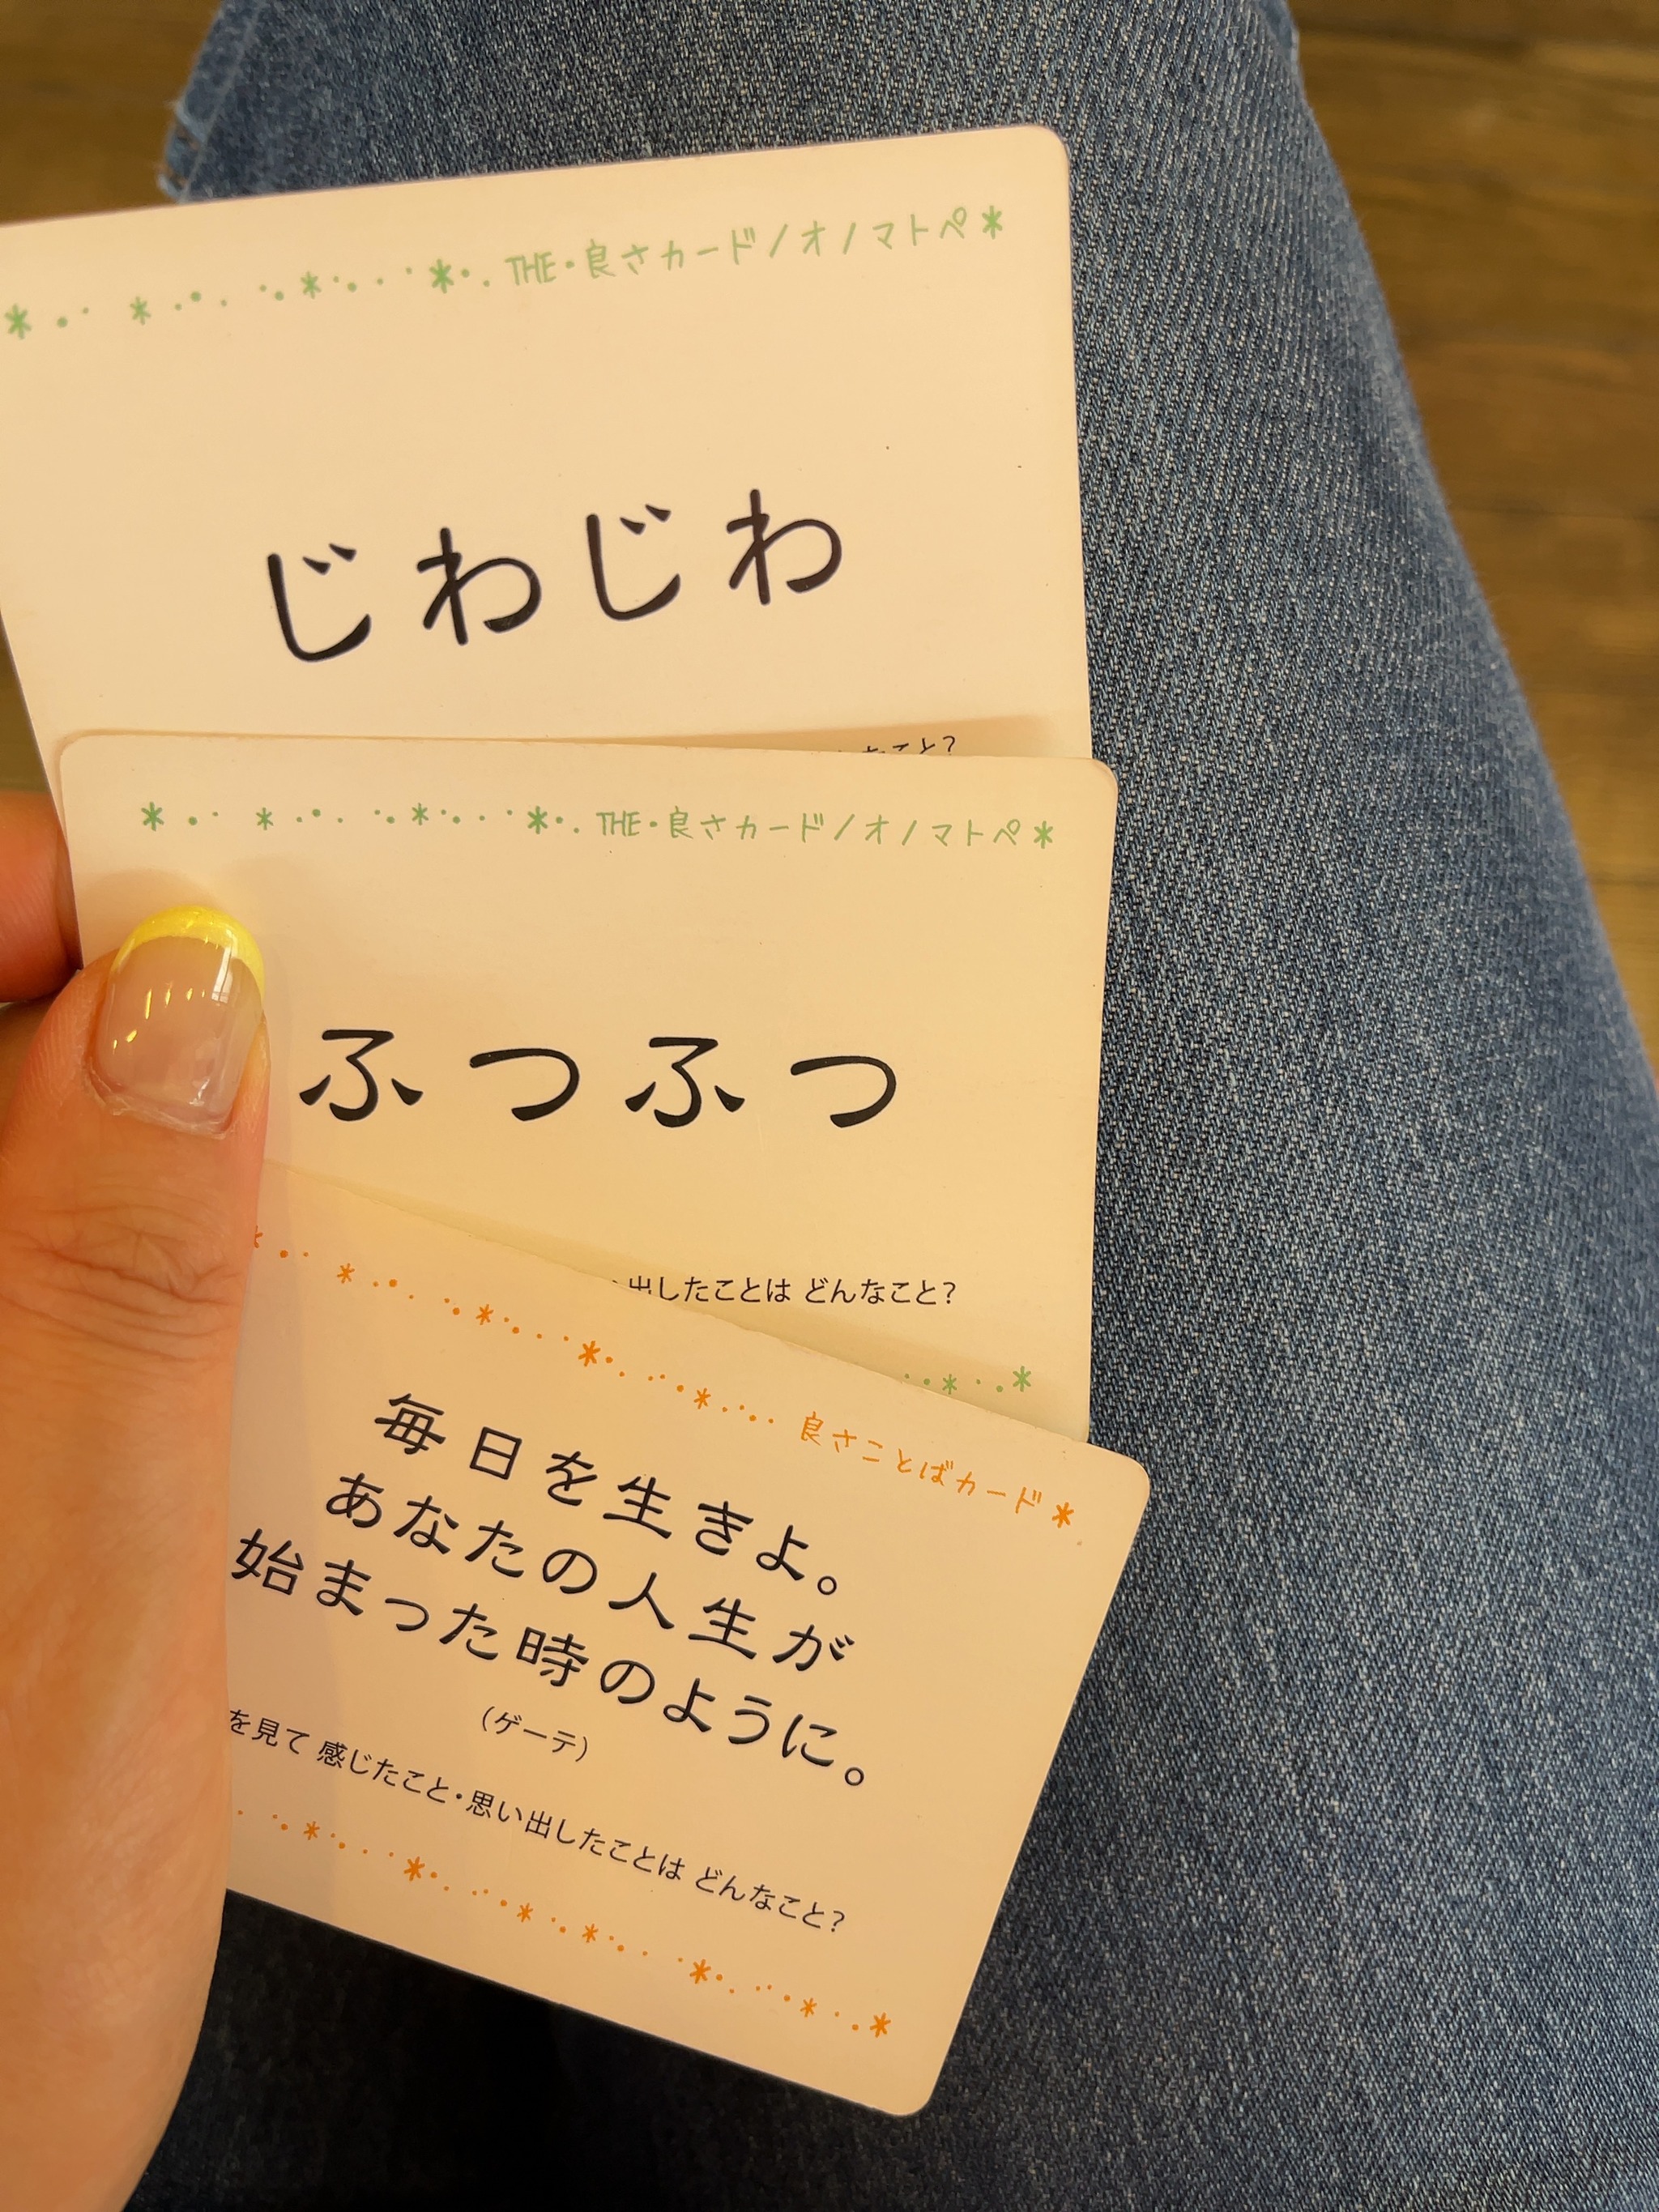 THE・良さカード/オノマトペ
じわじわ
なこと?
THE・良さカード/オノマトペ
ふつふつ
出したことは どんなこと?
良さことばカード
毎日を生きよ。
あなたの人生が
始まった時のように。
(ゲーテ)
を見て 感じたこと・思い出したことは どんなこと?